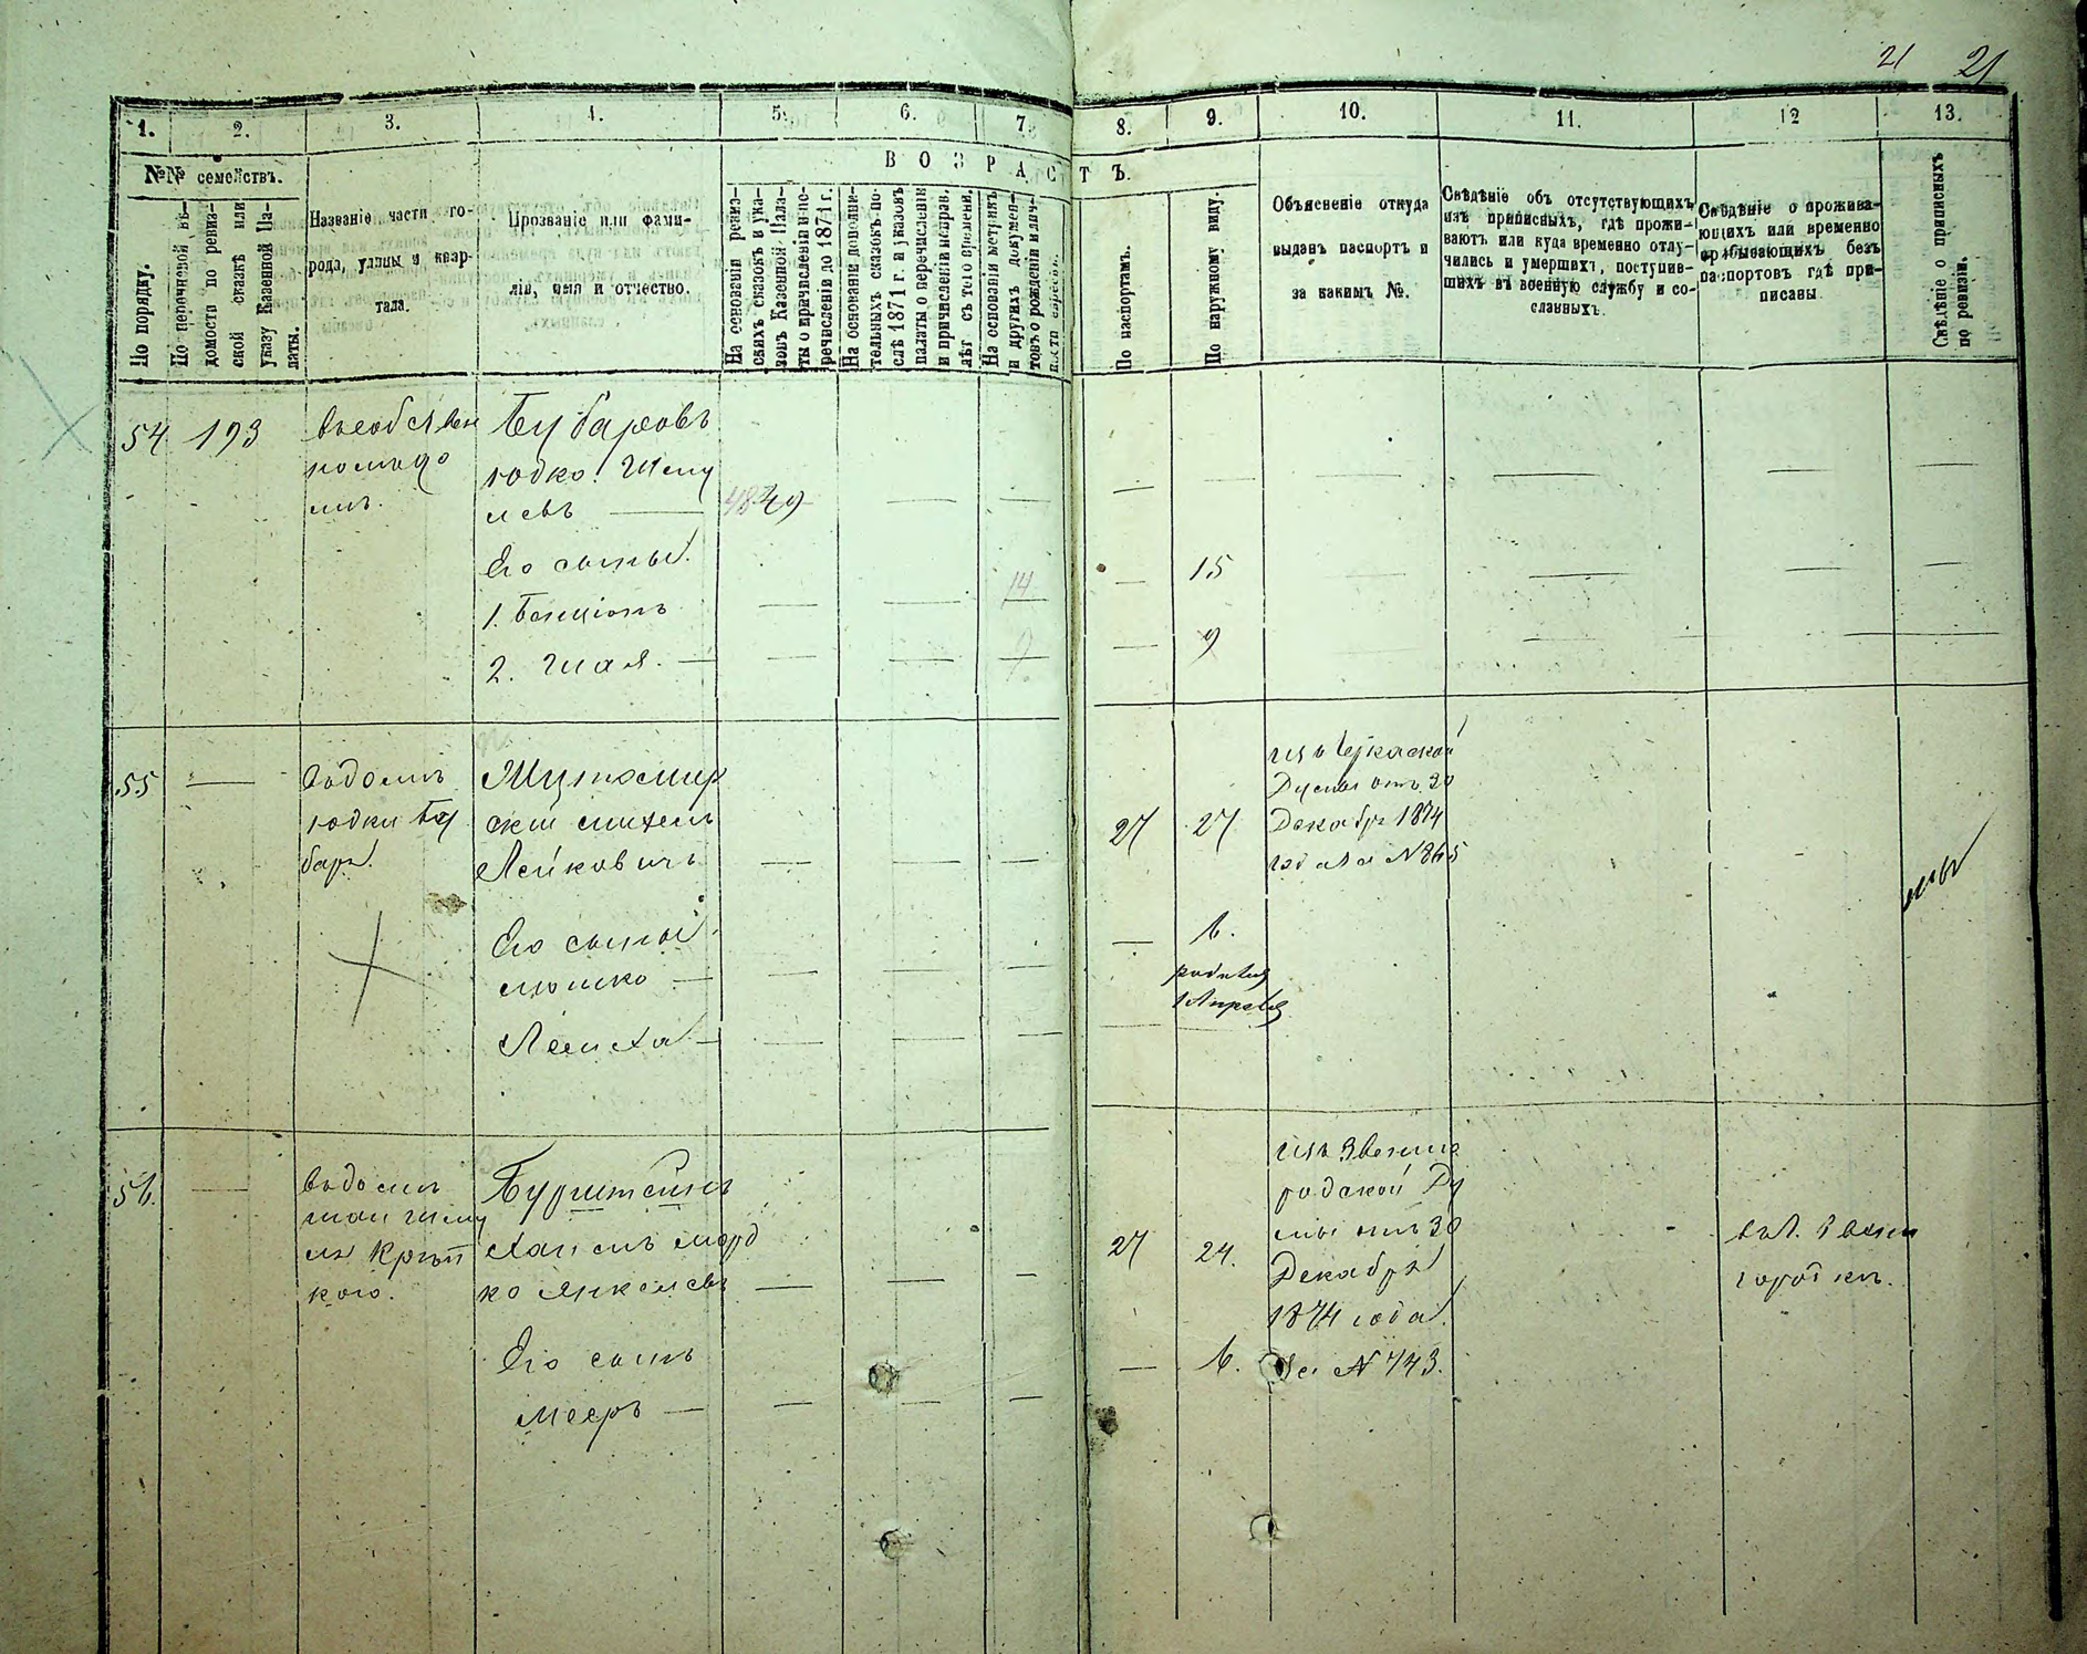 21 21
1. 2. 3. 4. 5. 6. 7. 8. 9. 10. 11. 12 13.
№№ семействъ.
По порядку.
По перечневой вѣ-
домости по ревиз-
ской сказкѣ или
указу Казенной Па-
латы.
Названіе части го-
рода, улицы и квар-
тала.
Прозваніе или фами-
лія, имя и отчество.
ВОЗРАСТЪ.
На основаніи ревиз-
скихъ сказокъ и ука-
зовъ Казенной Пала-
ты о причисленіи и пе-
речисленіи до 1871 г.
На основаніи дополни-
тельныхъ сказокъ по-
слѣ 1871 г. и указовъ
палаты о перечисленіи
и причисленіи исправ.
лѣт съ того времени.
На основаніи метрикъ
и другихъ докумен-
товъ о рожденіи и лич-
По паспортамъ.
По наружному виду.
Объясненіе откуда
выданъ паспортъ и
за какимъ №.
Свѣдѣніе объ отсутствующихъ
изъ приписныхъ, гдѣ прожи-
ваютъ или куда временно отлу-
чились и умершихъ, поступив-
шихъ въ военную службу и со-
сланныхъ.
Свѣдѣніе о прожива-
ющихъ или временно
пребывающихъ безъ
паспортовъ гдѣ при-
писаны
Свѣдѣніе о приписныхъ
по ревизіи.
54 193
Бубаровъ
Юдко Шму
левъ — 48 49
Его сыны
1. Бенціонъ — — 14 — 15
2. Шая — — — 9 — 9
55 —
въ домѣ
Юдки Бу
бара
ский
Лейковичъ — — — 27 27
изъ Черкаской
Думы отъ 30
Декабря 1874
года за № 865
Его сыны
Мошко — — — — 6.
родился
— — —
56. —
въ домѣ
Шму
кого.
Бурштейнъ
Хаимъ Морд
ко Янкелевъ — — — 27 24.
изъ Звениго
родской Ду
мы отъ 30
Декабря
1874 года
за № 743.
городкѣ.
Его сынъ
Мееръ — — — — — 6.